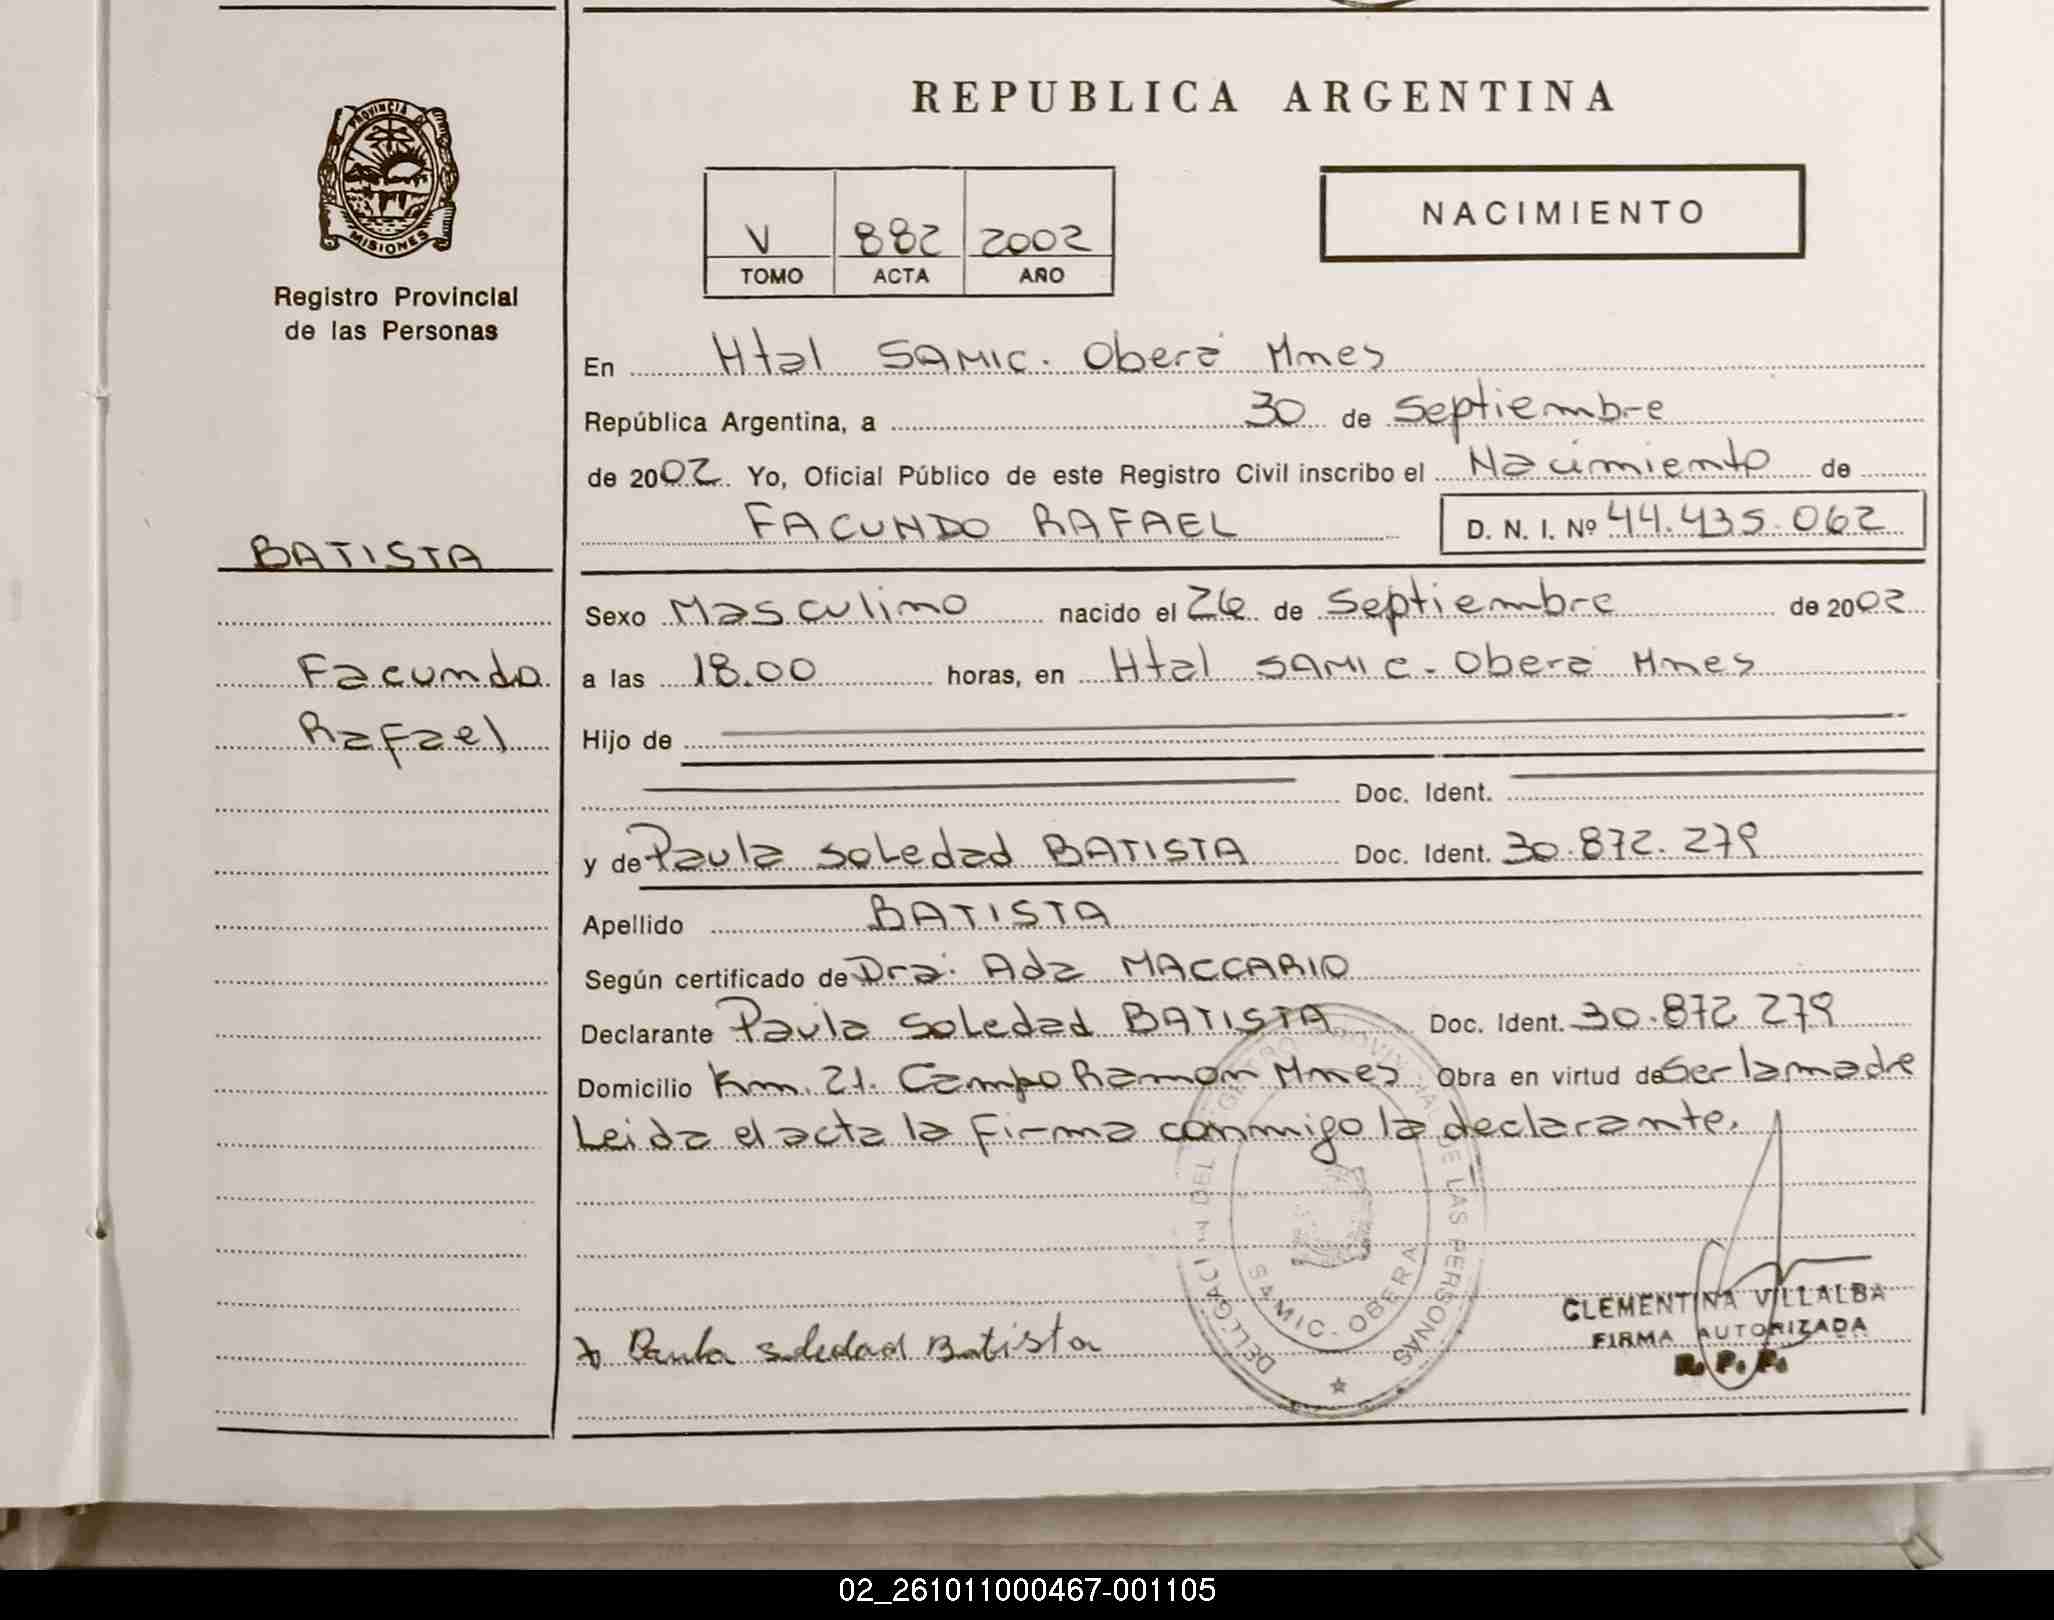 REPUBLICA ARGENTINA
PROVINCIA D
MISIONES
Registro Provincial
de las Personas
V 882 2002
TOMO ACTA AÑO
NACIMIENTO
En Htal SAMIC. Oberá Mnes
República Argentina, a 30 de Septiembre
de 2002 Yo, Oficial Público de este Registro Civil inscribo el Nacimiento de
FACUNDO RAFAEL D. N. I. Nº 44.435.062
BATISTA
Facundo
Rafael
Sexo Masculino nacido el 26 de Septiembre de 2002
a las 18.00 horas, en Htal SAMIC. Oberá Mnes
Hijo de
Doc. Ident.
y de Paula Soledad BATISTA Doc. Ident. 30.872.279
Apellido BATISTA
Según certificado de Dra. Ada MACCARIO
Declarante Paula Soledad BATISTA Doc. Ident. 30.872 279
Domicilio Km. 21. Campo Ramon Mnes Obra en virtud de Ser la madre
Leida el acta la firma conmigo la declarante.
DEL REGISTRO PROVINCIAL DE LAS PERSONAS
SAMIC. OBERA
Paula soledad Batista
CLEMENTINA VILLALBA
FIRMA AUTORIZADA
R. P. P.
02_261011000467-001105